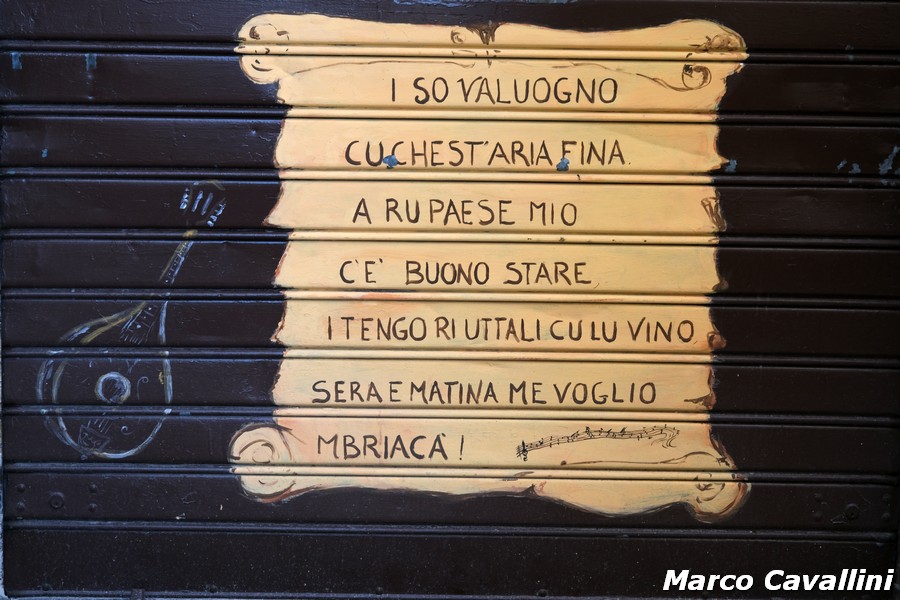 I SO VALUOGNO
CU CHEST'ARIA FINA.
A RU PAESE MIO
C'E' BUONO STARE
I TENGO RI UTTALI CU LU VINO
SERA E MATINA ME VOGLIO
MBRIACA'!
Marco Cavallini